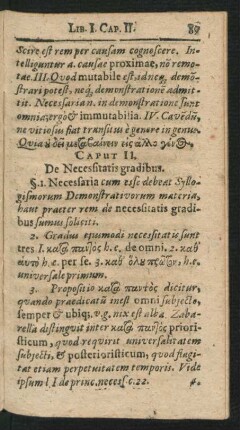 Lib. I. Cap. II. 89
Scire est rem per causam cognoscere. In-
telliguntur a. causae proximae, nō remo-
tae. III. Quod mutabile est, id neq; demō-
strari potest, neq́; demonstrationē admit-
tit. Necessaria n. in demonstratione sunt
omnia, ergo & immutabilia. IV. Cavēdū,
ne vitiosus fiat transitus è genere in genus.
Caput II.
De Necessitatis gradibus.
§. 1. Necessaria cum esse debeat Syllo-
gismorum Demonstrativorum materia,
haut praeter rem de necessitatis gradi-
bus sumus soliciti.
2. Gradus ejusmodi necessitatis sunt
tres. I. καϮ παντὸς h. e. de omni. 2. καθ'
αυτὸ h. e. per se. 3. καθ' ὅλου πρῶτον, h. e.
universale primum.
3. Propositio καϮ παντὸς dicitur,
quando praedicatū inest omni subjecto,
semper & ubiq;, v. g. nix est alba. Zaba-
rella distinguit inter καϮ παντὸς priori-
sticum, quod requirit universalitatem
subjecti, & posterioristicum, quod flagi-
tat etiam perpetuitatem temporis. Vide
ipsum l. I. de princ. necess. c. 22.